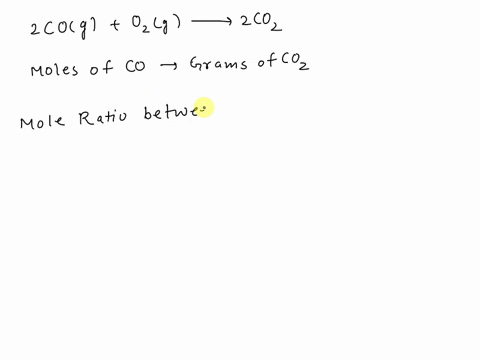 2CO(g) + O₂(g) ⟶ 2CO₂
Moles of CO → Grams of CO₂
Mole Ratio betwe